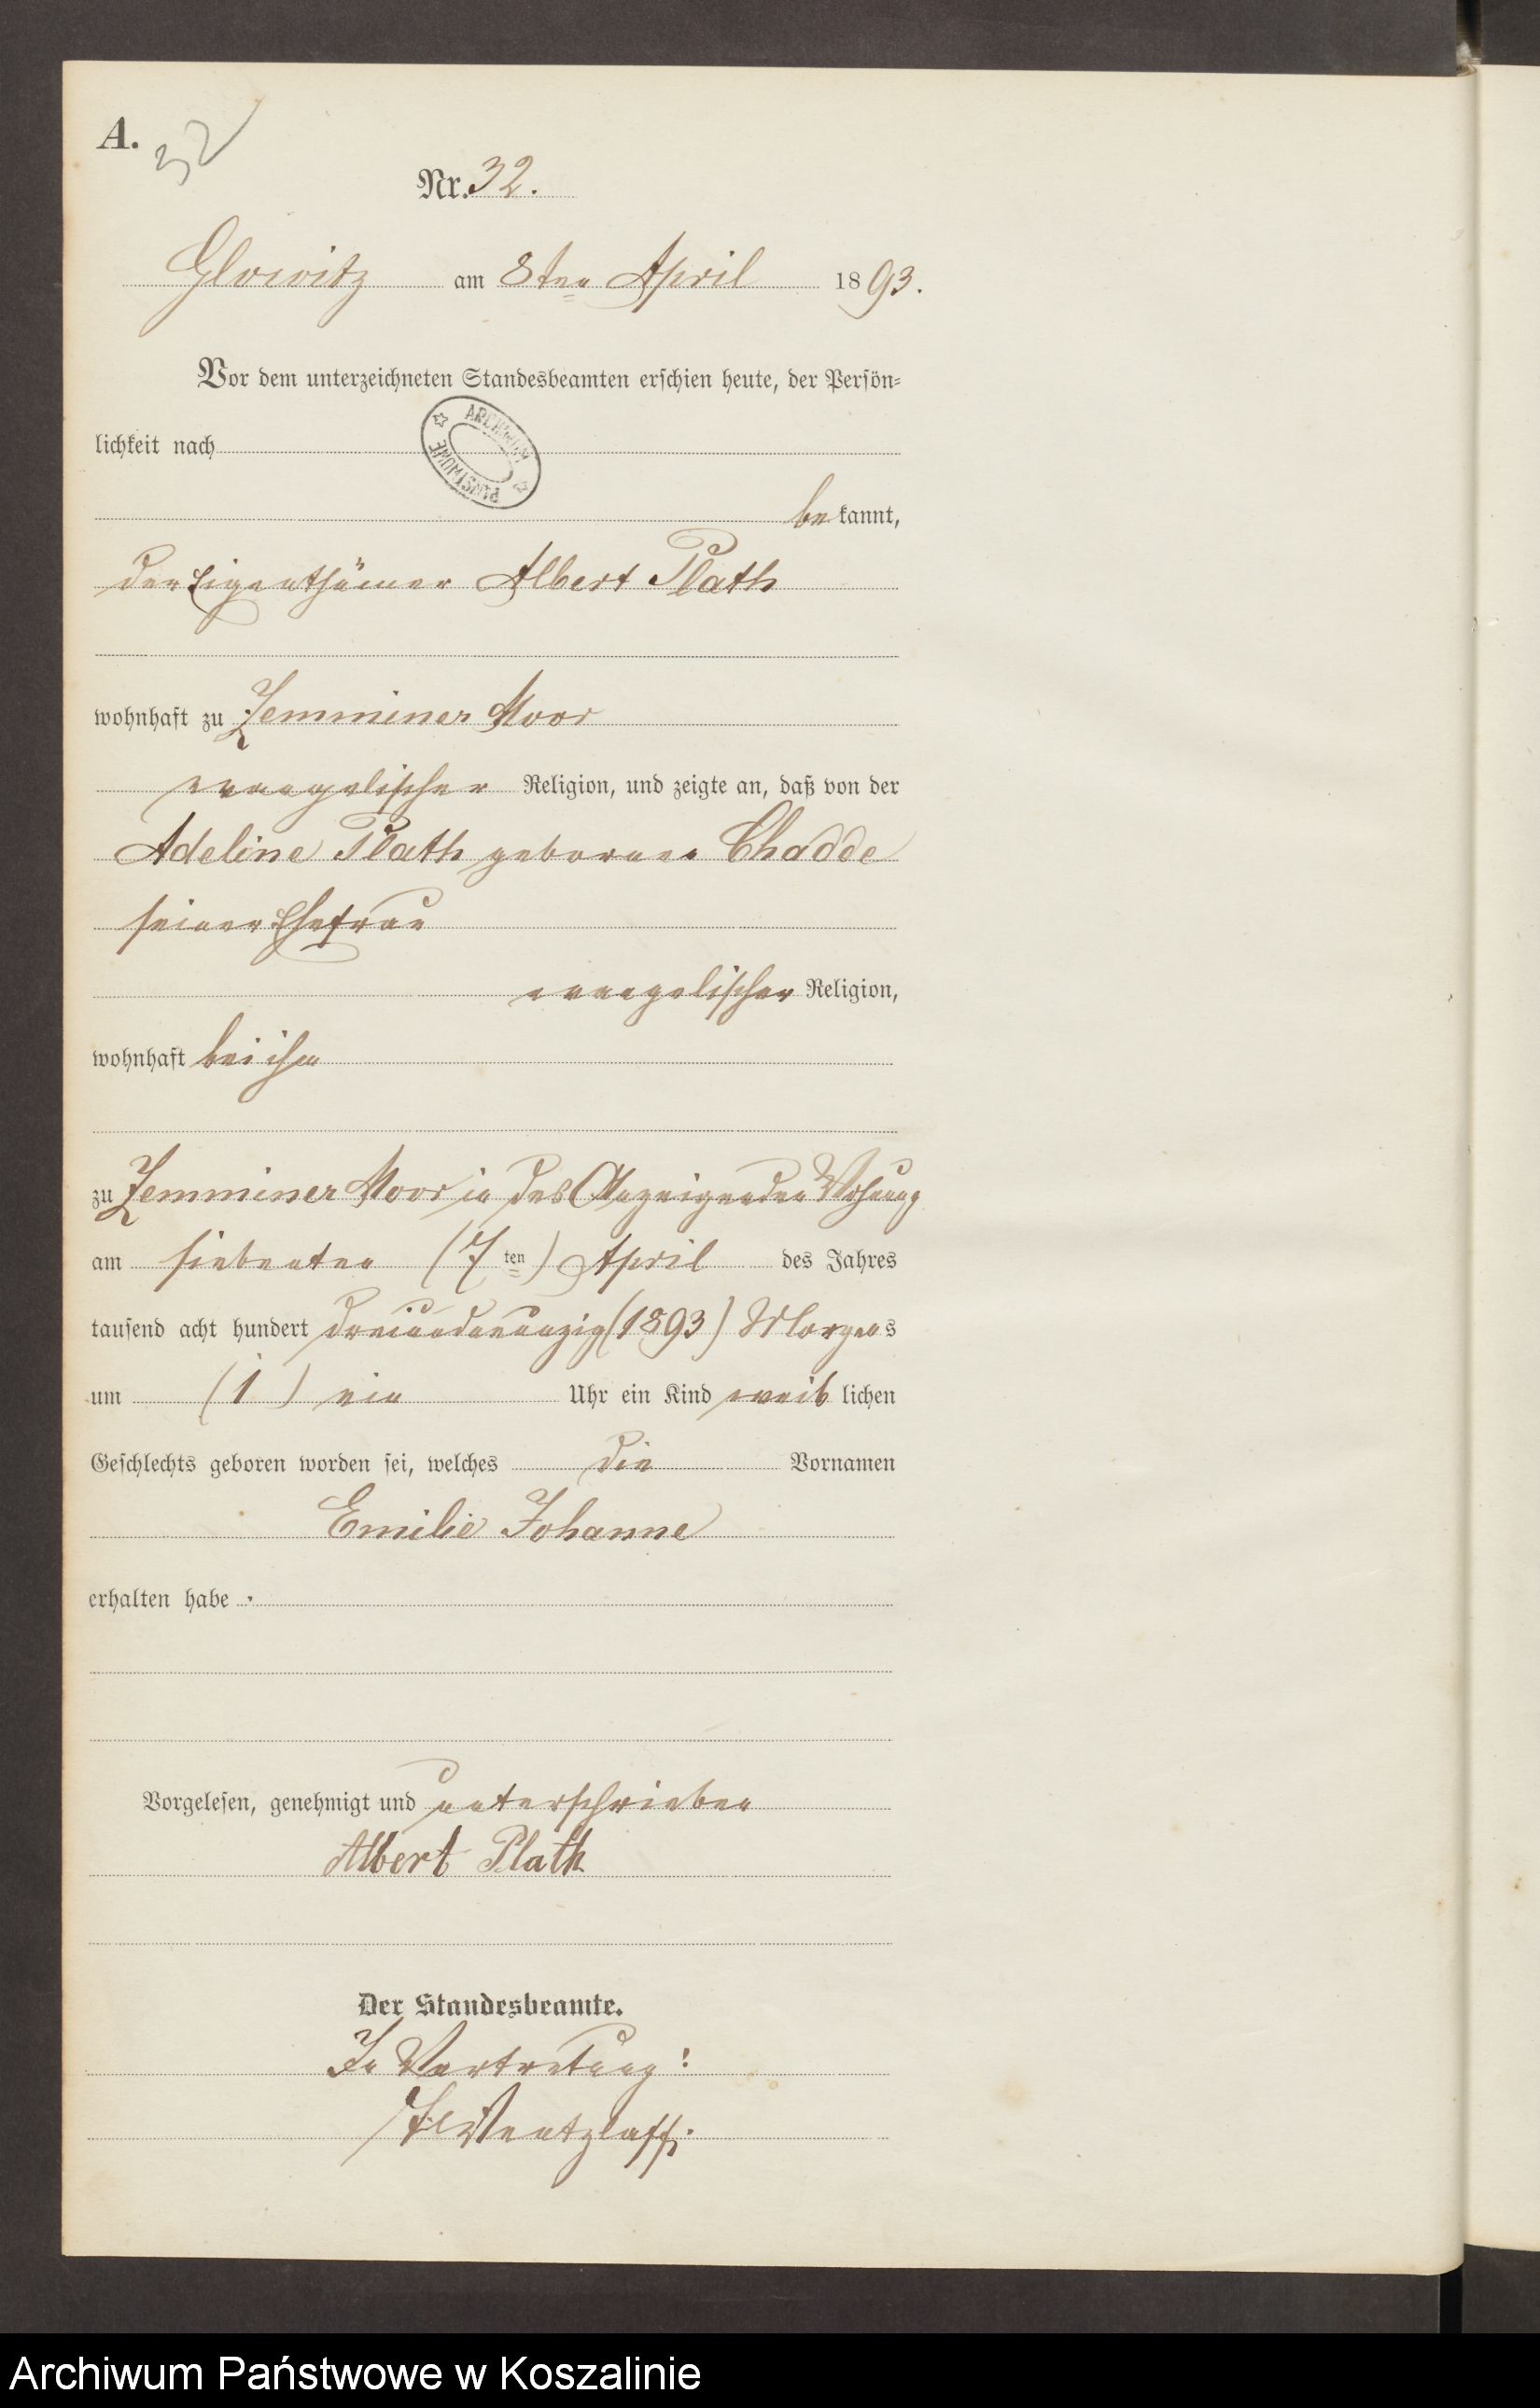 A.
32
Nr. 32.
Glowitz am 8ten April 1893.
Vor dem unterzeichneten Standesbeamten erschien heute, der Persön-
lichkeit nach
ARCHIWUM PAŃSTWOWE
bekannt,
der Eigenthümer Albert Plath
wohnhaft zu Zemminer Moor
evangelischer Religion, und zeigte an, daß von der
Adeline Plath geborenen Chadde
seiner Ehefrau
evangelischer Religion,
wohnhaft bei ihm
zu Zemminer Moor in des Anzeigenden Wohnung
am siebenten (7ten) April des Jahres
tausend acht hundert dreiundneunzig (1893) Morgens
um (1) ein Uhr ein Kind weiblichen
Geschlechts geboren worden sei, welches die Vornamen
Emilie Johanne
erhalten habe.
Vorgelesen, genehmigt und unterschrieben
Albert Plath
Der Standesbeamte.
In Vertretung!
Wentzlaff.
Archiwum Państwowe w Koszalinie